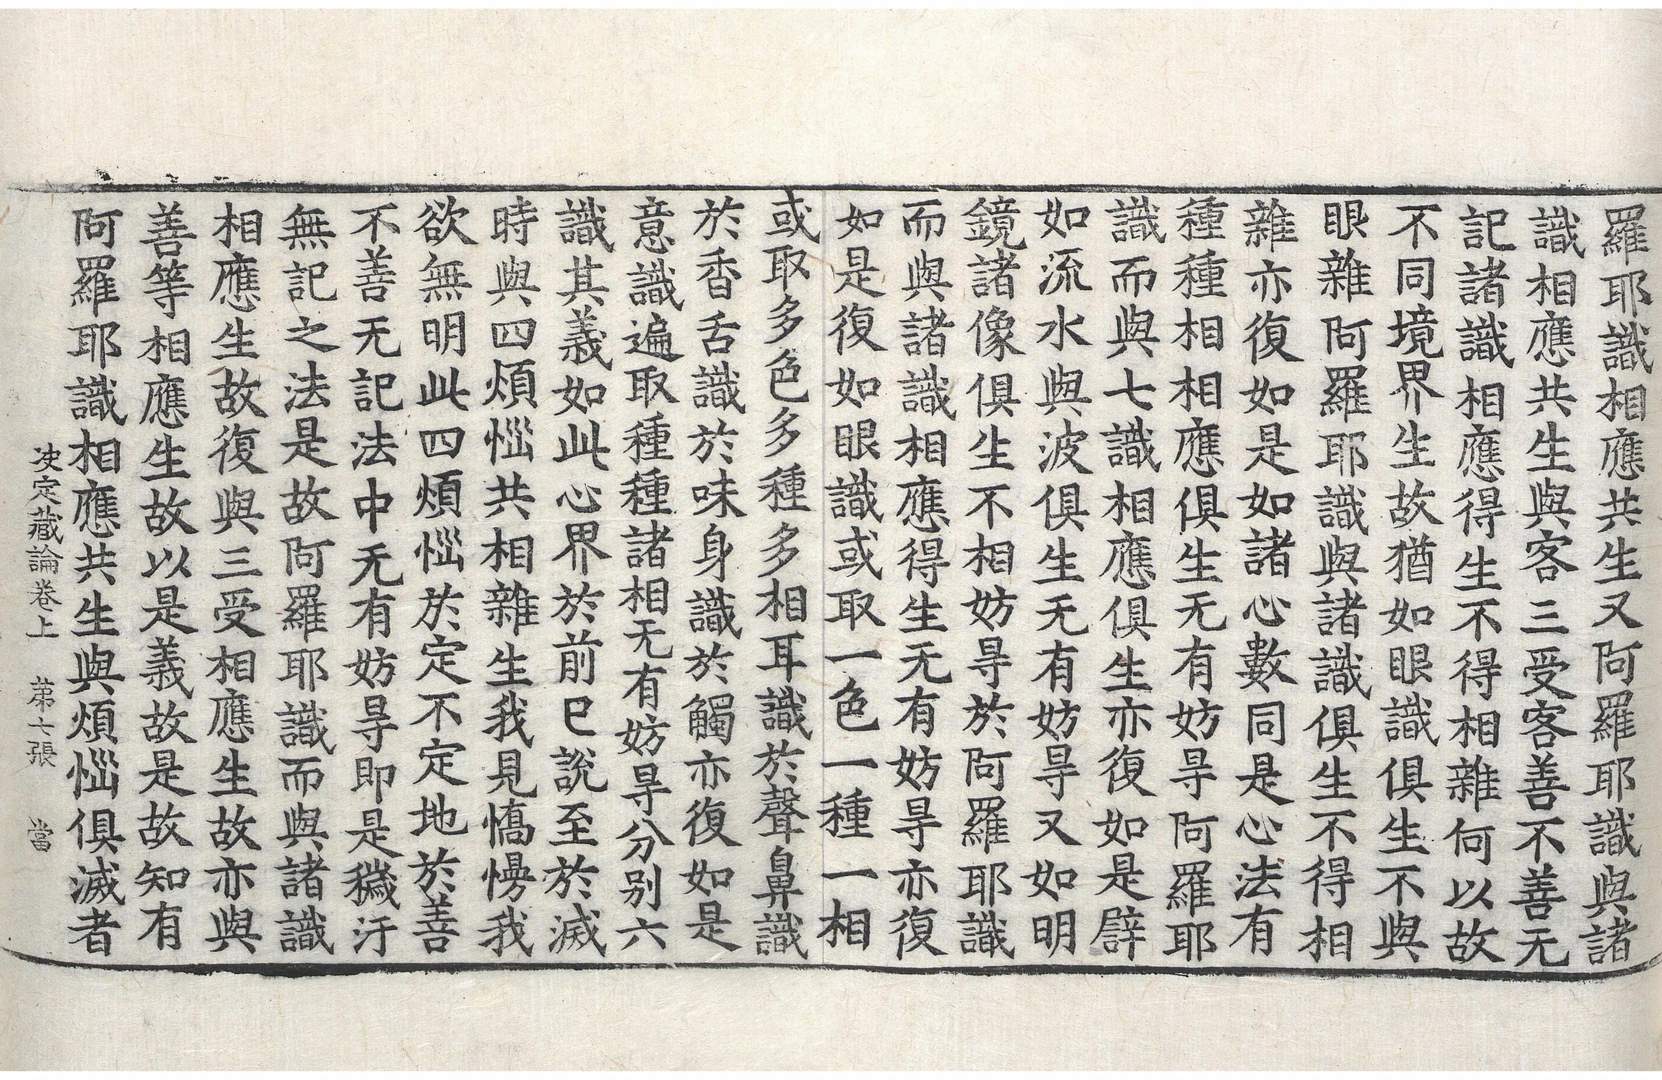 羅耶識相應共生又阿羅耶識與諸
識相應共生與客三受客善不善无
記諸識相應得生不得相雜何以故
不同境界生故猶如眼識俱生不與
眼雜阿羅耶識與諸識俱生不得相
雜亦復如是如諸心數同是心法有
種種相相應俱生无有妨㝵阿羅耶
識而與七識相應俱生亦復如是譬
如流水與波俱生无有妨㝵又如明
鏡諸像俱生不相妨㝵於阿羅耶識
而與諸識相應得生无有妨㝵亦復
如是復如眼識或取一色一種一相
或取多色多種多相耳識於聲鼻識
於香舌識於味身識於觸亦復如是
意識遍取種種諸相无有妨㝵分別六
識其義如此心界於前已說至於滅
時與四煩惱共相雜生我見憍慢我
欲無明此四煩惱於定不定地於善
不善无記法中无有妨㝵即是穢汙
無記之法是故阿羅耶識而與諸識
相應生故復與三受相應生故亦與
善等相應生故以是義故是故知有
阿羅耶識相應共生與煩惱俱滅者
决定藏論卷上　苐七張　當